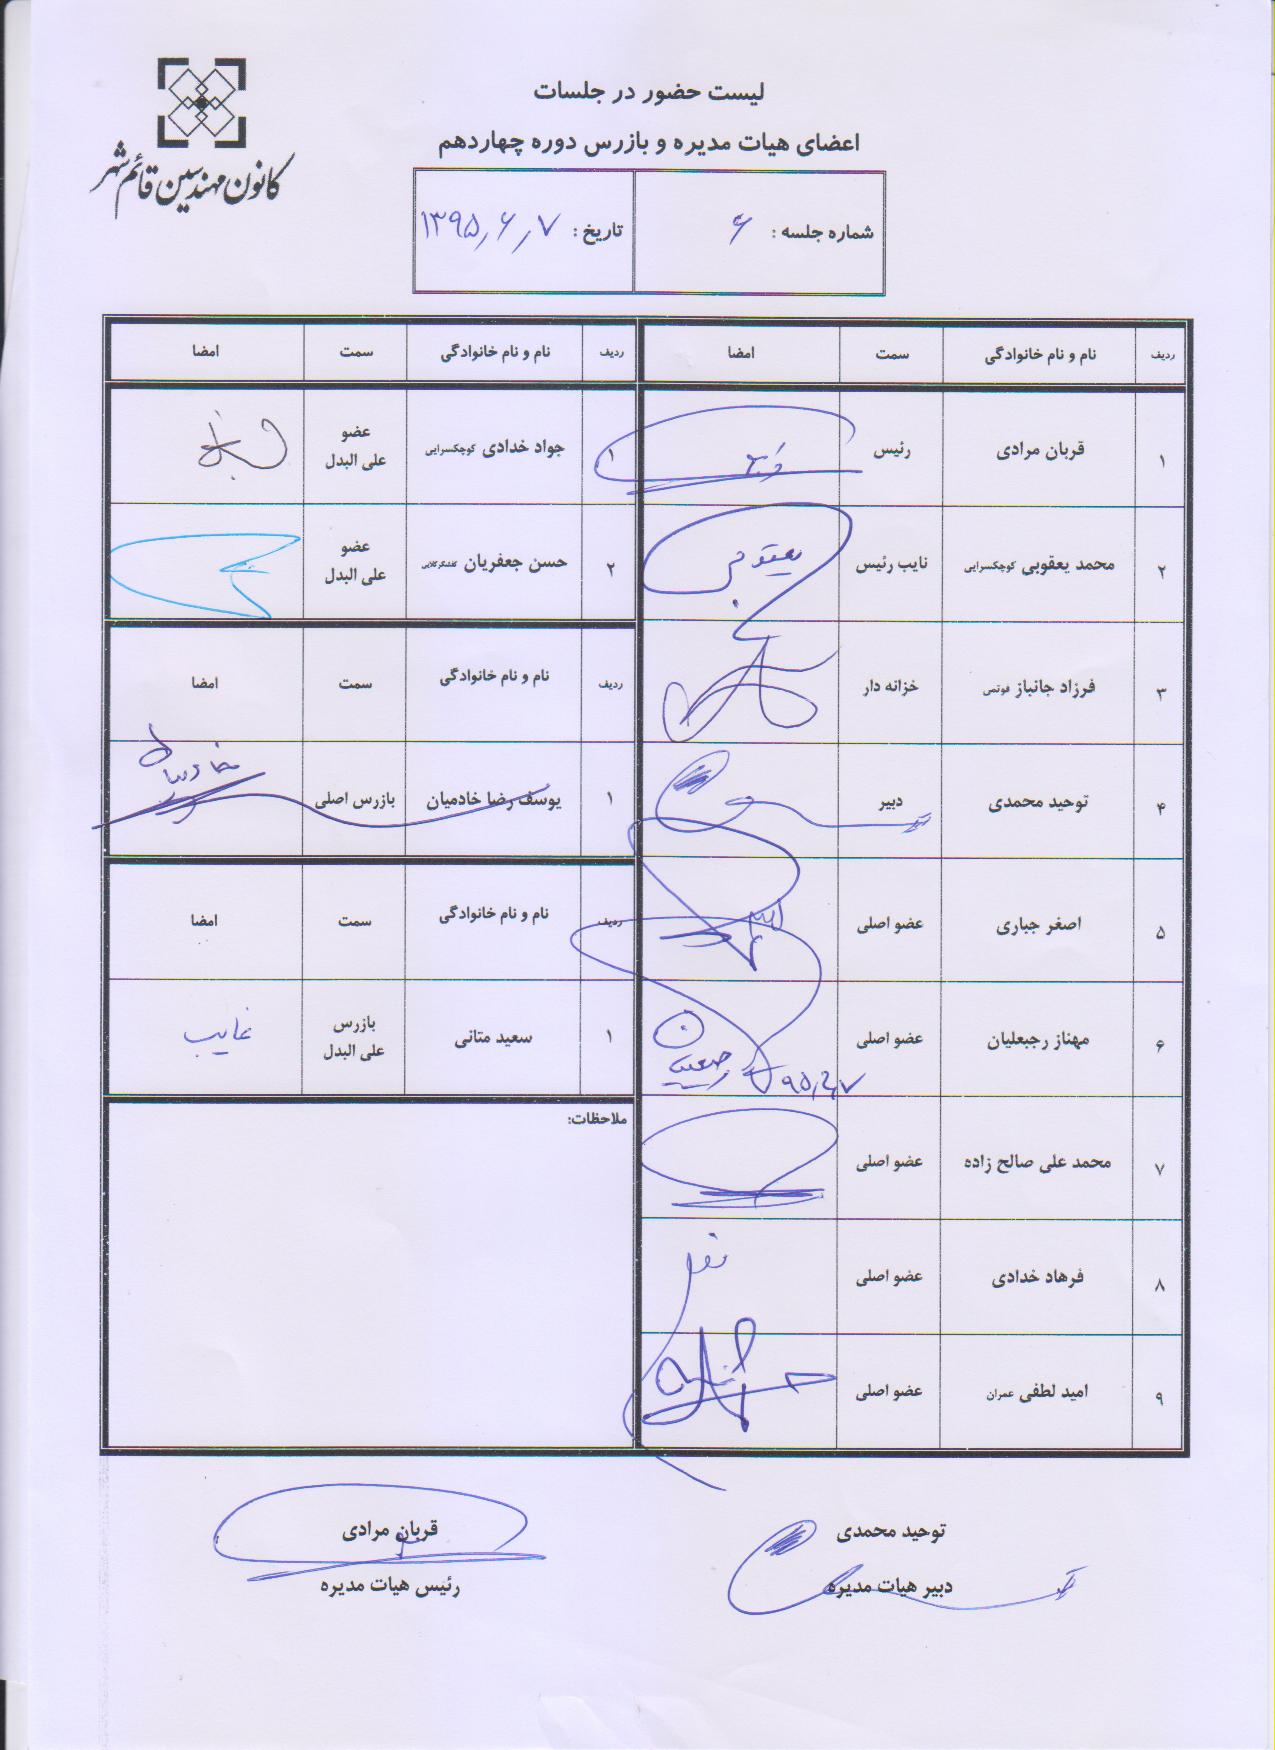 کانون مهندسین قائم شهر
لیست حضور در جلسات
اعضای هیات مدیره و بازرس دوره چهاردهم
شماره جلسه : ۶
تاریخ : ۱۳۹۵/۶/۷
ردیف نام و نام خانوادگی سمت امضا
۱ قربان مرادی رئیس
۲ محمد یعقوبی کوچکسرایی نایب رئیس یعقوبی
۳ فرزاد جانباز فوتمی خزانه دار
۴ توحید محمدی دبیر
۵ اصغر جباری عضو اصلی
۶ مهناز رجبعلیان عضو اصلی
۹۵/۶/۷
۷ محمد علی صالح زاده عضو اصلی
۸ فرهاد خدادی عضو اصلی
۹ امید لطفی عمران عضو اصلی
ردیف نام و نام خانوادگی سمت امضا
۱ جواد خدادی کوچکسرایی عضو
علی البدل
۲ حسن جعفریان عضو
علی البدل
ردیف نام و نام خانوادگی سمت امضا
۱ یوسف رضا خادمیان بازرس اصلی
ردیف نام و نام خانوادگی سمت امضا
۱ سعید متانی بازرس
علی البدل
غایب
ملاحظات:
توحید محمدی
دبیر هیات مدیره
قربان مرادی
رئیس هیات مدیره